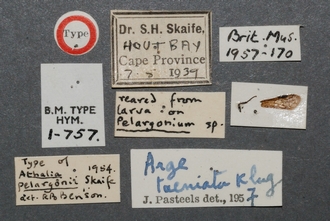 Type
Dr. S.H. Skaife,
HOUT BAY
Cape Province
1937
Brit. Mus.
1957-170
B.M. TYPE
HYM.
1-757.
reared from
larva: on
Pelargonium sp.
Type of
Athalia 1954.
pelargonii Skaife
det. R.B. Benson.
Arge
taeniata Klug
J. Pasteels det., 1957